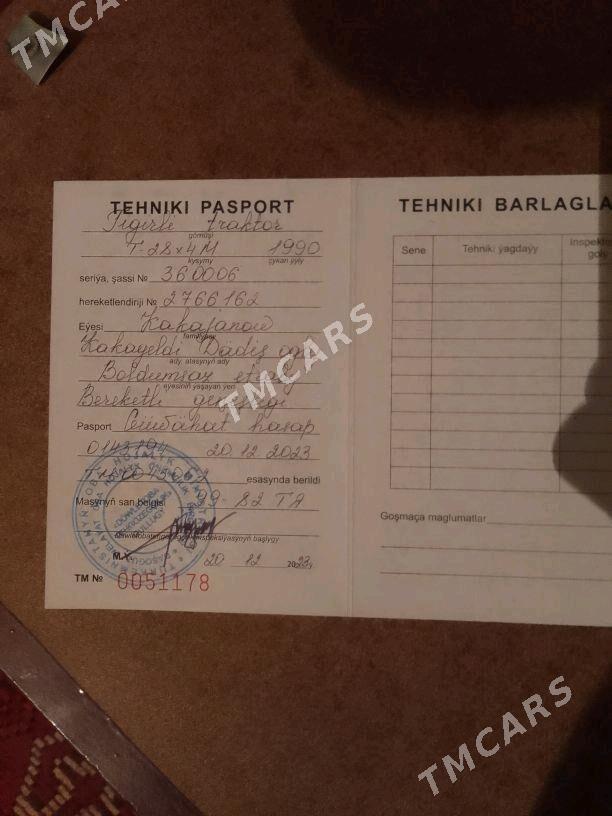 TMCARS
TEHNIKI PASPORT
Tigirli traktor
görnüşi
T-28x4M 1990
kysymy çykan ýyly
seriýa, şassi № 360006
hereketlendiriji № 2766162
Eýesi Kakajanow
familiýasy
Kakageldi Dädiş ogly
ady, atasynyň ady
Boldumsaz etraby
eýesiniň ýaşaýan ýeri
Bereketli geňeşligi
Pasport Güwähat hasap
0143194 20.12.2023
esasynda berildi
Maşynyň san belgisi 99-82 TA
M.Ý. 20 12 2023ý
TM № 0051178
TEHNIKI BARLAGLA
Sene
Tehniki ýagdaýy
Inspekto
goly
Goşmaça maglumatlar
TMCARS
TMCARS